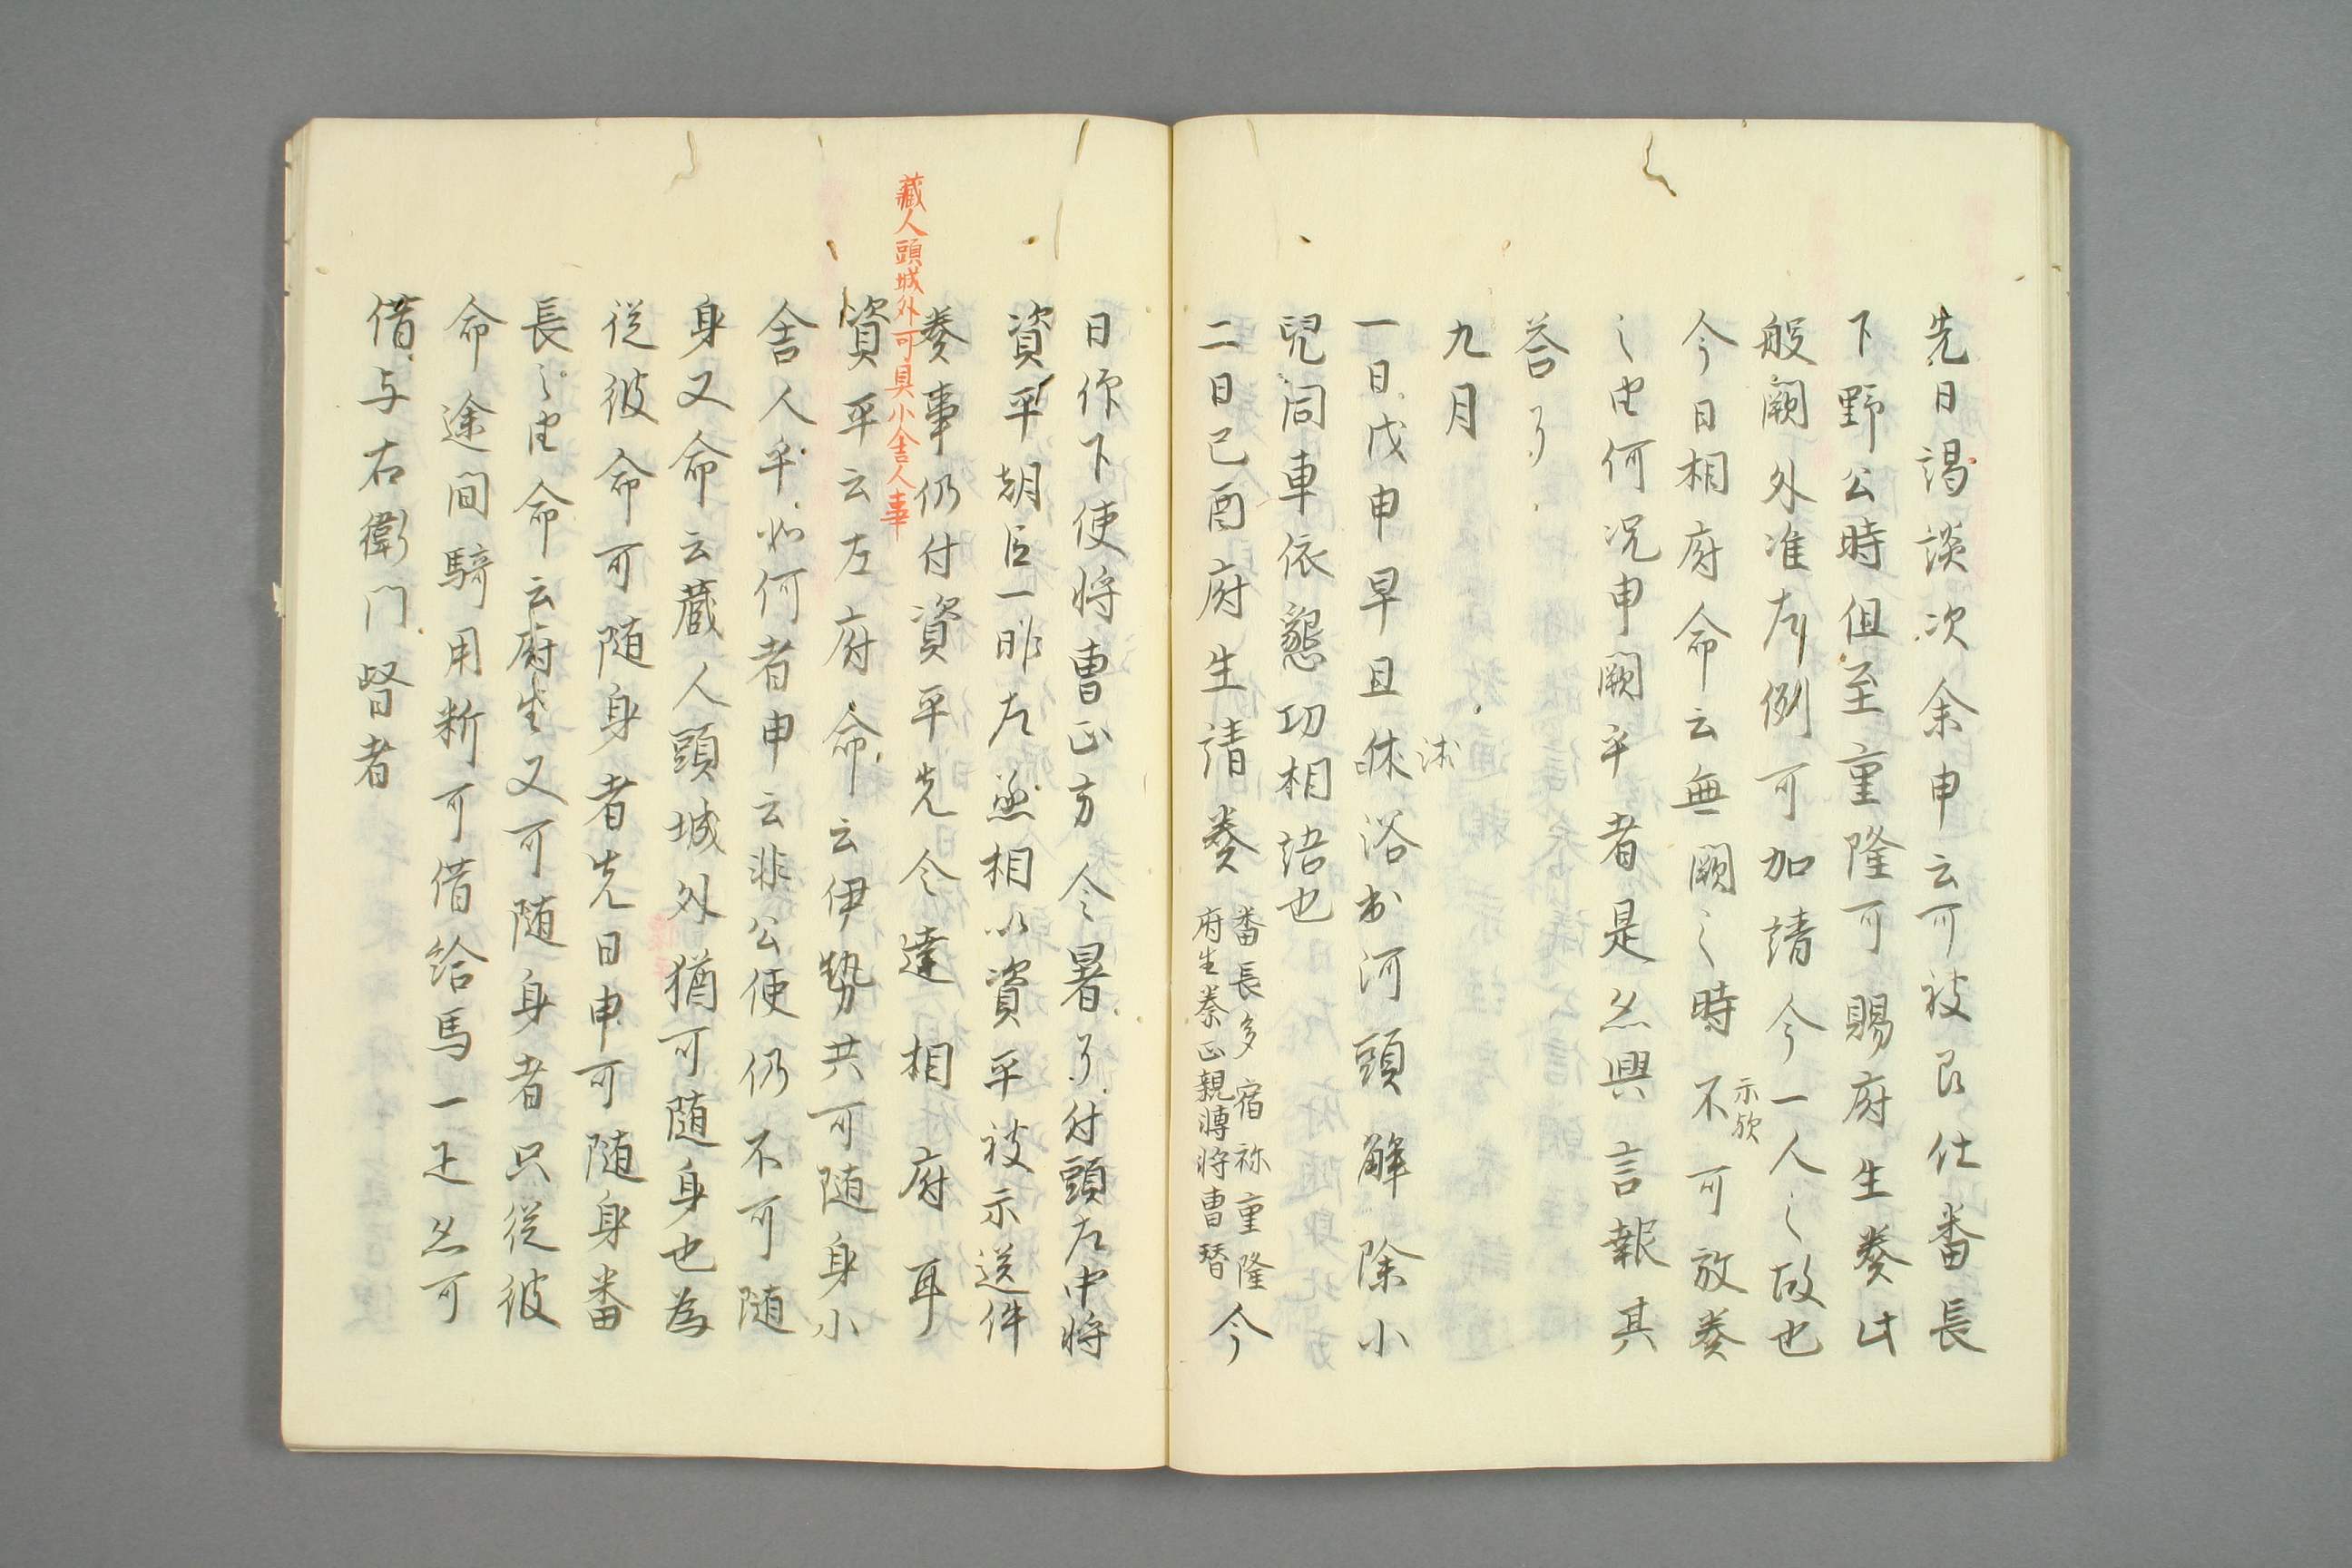 先日謁談次余申云可被召仕番長
下野公時但至重隆可賜府生奏此
般闕外准左例可加請今一人之故也
今日相府命云無闕之時不可放奏
示欤
之由何況申闕乎者是以興言報其
答了
九月
一日戊申早旦休浴出河頭解除小
沐
児同車依懇切相語也
二日己酉府生請奏
番長多宿祢重隆
府生秦正親轉将曹替
今
日作下使将曹正方令署了付頭左中将
資平朝臣一昨左丞相以資平被示送件
奏事仍付資平先令達相府耳
藏人頭城外可具小舎人事
資平云左府命云伊勢共可随身小
舎人乎如何者申云非公使仍不可随
身又命云蔵人頭城外猶可随身也為
従彼命可随身者先日申可随身番
長之由命云府生又可随身者只従彼
命途間騎用料可借給馬一疋以可
借与右衛門督者